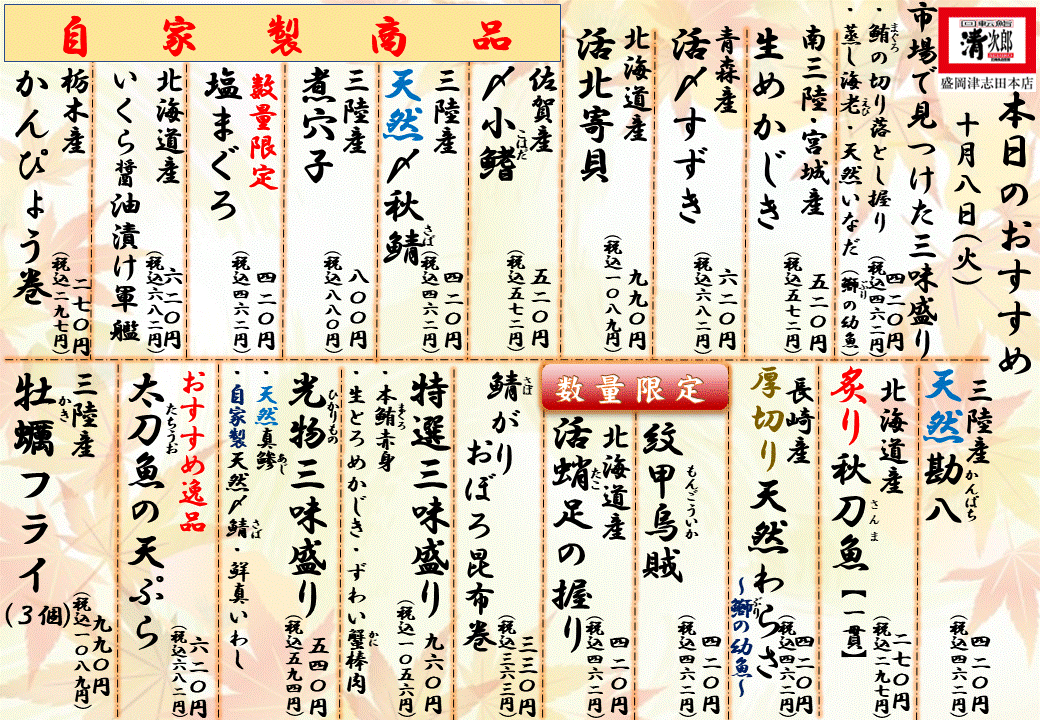 回転鮨
清次郎
盛岡津志田本店
本日のおすすめ
十月八日(火)
市場で見つけた三味盛り
・鮪の切り落とし握り
まぐろ
・蒸し海老・天然いなだ(鰤の幼魚)
えび
ぶり
四二〇円
(税込四六二円)
南三陸・宮城産
生めかじき
五二〇円
(税込五七二円)
青森産
活〆すずき
六二〇円
(税込六八二円)
北海道産
活北寄貝
九九〇円
(税込一〇八九円)
自家製商品
佐賀産
〆小鰭
こはだ
五二〇円
(税込五七二円)
三陸産
天然〆秋鯖
さば
四二〇円
(税込四六二円)
三陸産
煮穴子
八〇〇円
(税込八八〇円)
数量限定
塩まぐろ
四二〇円
(税込四六二円)
北海道産
いくら醤油漬け軍艦
六二〇円
(税込六八二円)
栃木産
かんぴょう巻
二七〇円
(税込二九七円)
三陸産
天然勘八
かんぱち
四二〇円
(税込四六二円)
北海道産
炙り秋刀魚【一貫】
さんま
二七〇円
(税込二九七円)
長崎産
厚切り天然わらさ
~鰤の幼魚~
ぶり
四二〇円
(税込四六二円)
数量限定
紋甲烏賊
もんごういか
四二〇円
(税込四六二円)
北海道産
活蛸足の握り
たこ
四二〇円
(税込四六二円)
鯖がり
さば
おぼろ昆布巻
三三〇円
(税込三六三円)
特選三味盛り
・本鮪赤身
まぐろ
・生とろめかじき・ずわい蟹棒肉
かに
九六〇円
(税込一〇五六円)
光物三味盛り
ひかりもの
・天然真鯵
あじ
・自家製天然〆鯖・鮮真いわし
さば
五四〇円
(税込五九四円)
おすすめ逸品
太刀魚の天ぷら
たちうお
六二〇円
(税込六八二円)
三陸産
牡蠣フライ(3個)
かき
九九〇円
(税込一〇八九円)